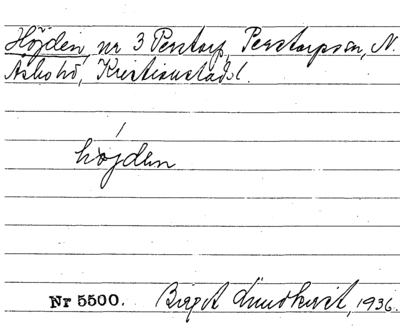 Höjden, nr 3 Perstorp, Perstorps sn, N.
Åsbo hd, Kristianstads l.
höjden
Nr 5500. Birgit Lundkvist, 1936.